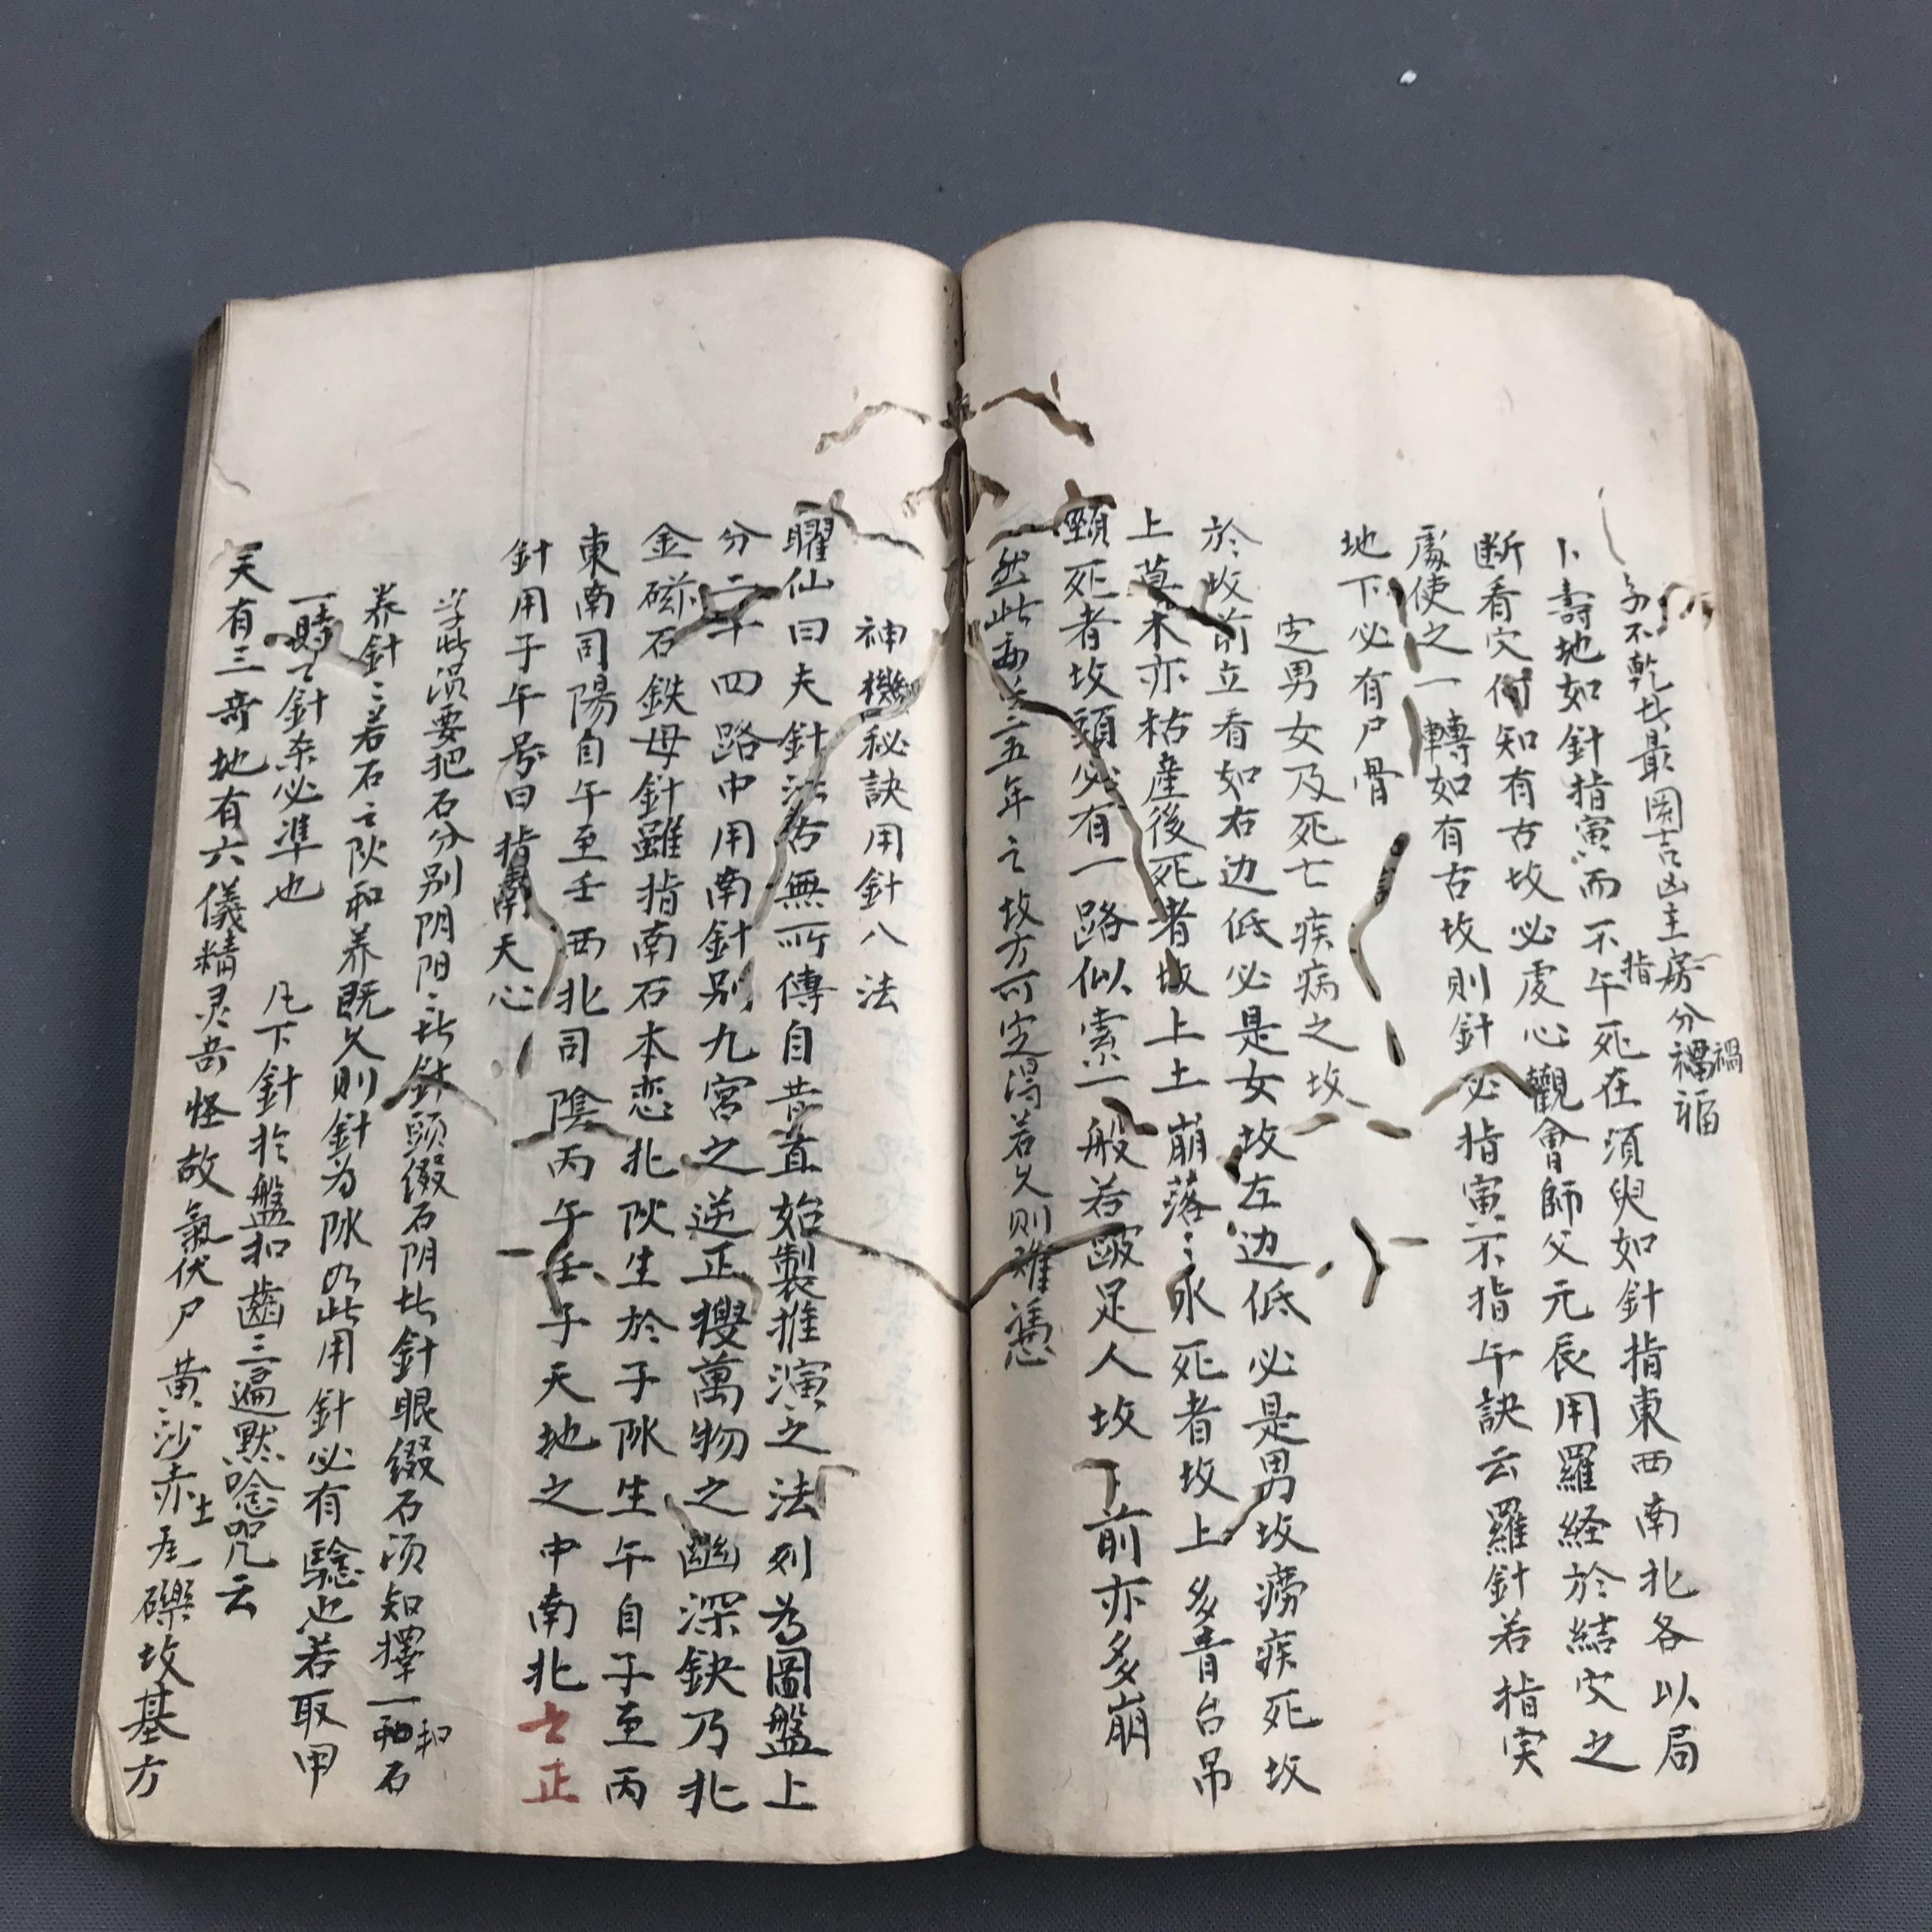 不乾此最関吉凶主房分禍福
禍
卜壽地如針指寅而不午死在須臾如針指東西南北各以局
指
断看穴何知有古坟必虔心觀會師父元辰用羅経於結穴之
處使之一轉如有古坟則針必指寅不指午訣云羅針若指寅
地下必有尸骨
定男女及死亡疾病之坟
於坟前立看如右边低必是女坟左边低必是男坟癆疾死坟
上草木亦枯産後死者坟上土崩落水死者坟上多青台吊
頸死者坟頭必有一路似索一般若跛足人坟前亦多崩
然此三五年之坟方可定得若久则难憑
神機秘訣用針八法
臞仙曰夫針法古無所傳自昔直始製推演之法列为圖盤上
分二十四路中用南針别九宮之逆正搜萬物之幽深鈌乃北
金磁石鉄母針雖指南石本恋北阦生於子阥生午自子至丙
東南司陽自午至壬西北司陰丙午壬子天地之中南北之正
針用子午号曰指南天心
学此須要把石分别阴阳此針頭缀石阴此針眼缀石須知擇一和石
養針若石之阦和养既久则針为阥如此用針必有驗也若取甲
一時下針奈必準也
凡下針於盤扣齒三遍黙唸咒云
天有三奇地有六儀精灵奇怪故氣伏尸黄沙赤土瓦礫坟基方